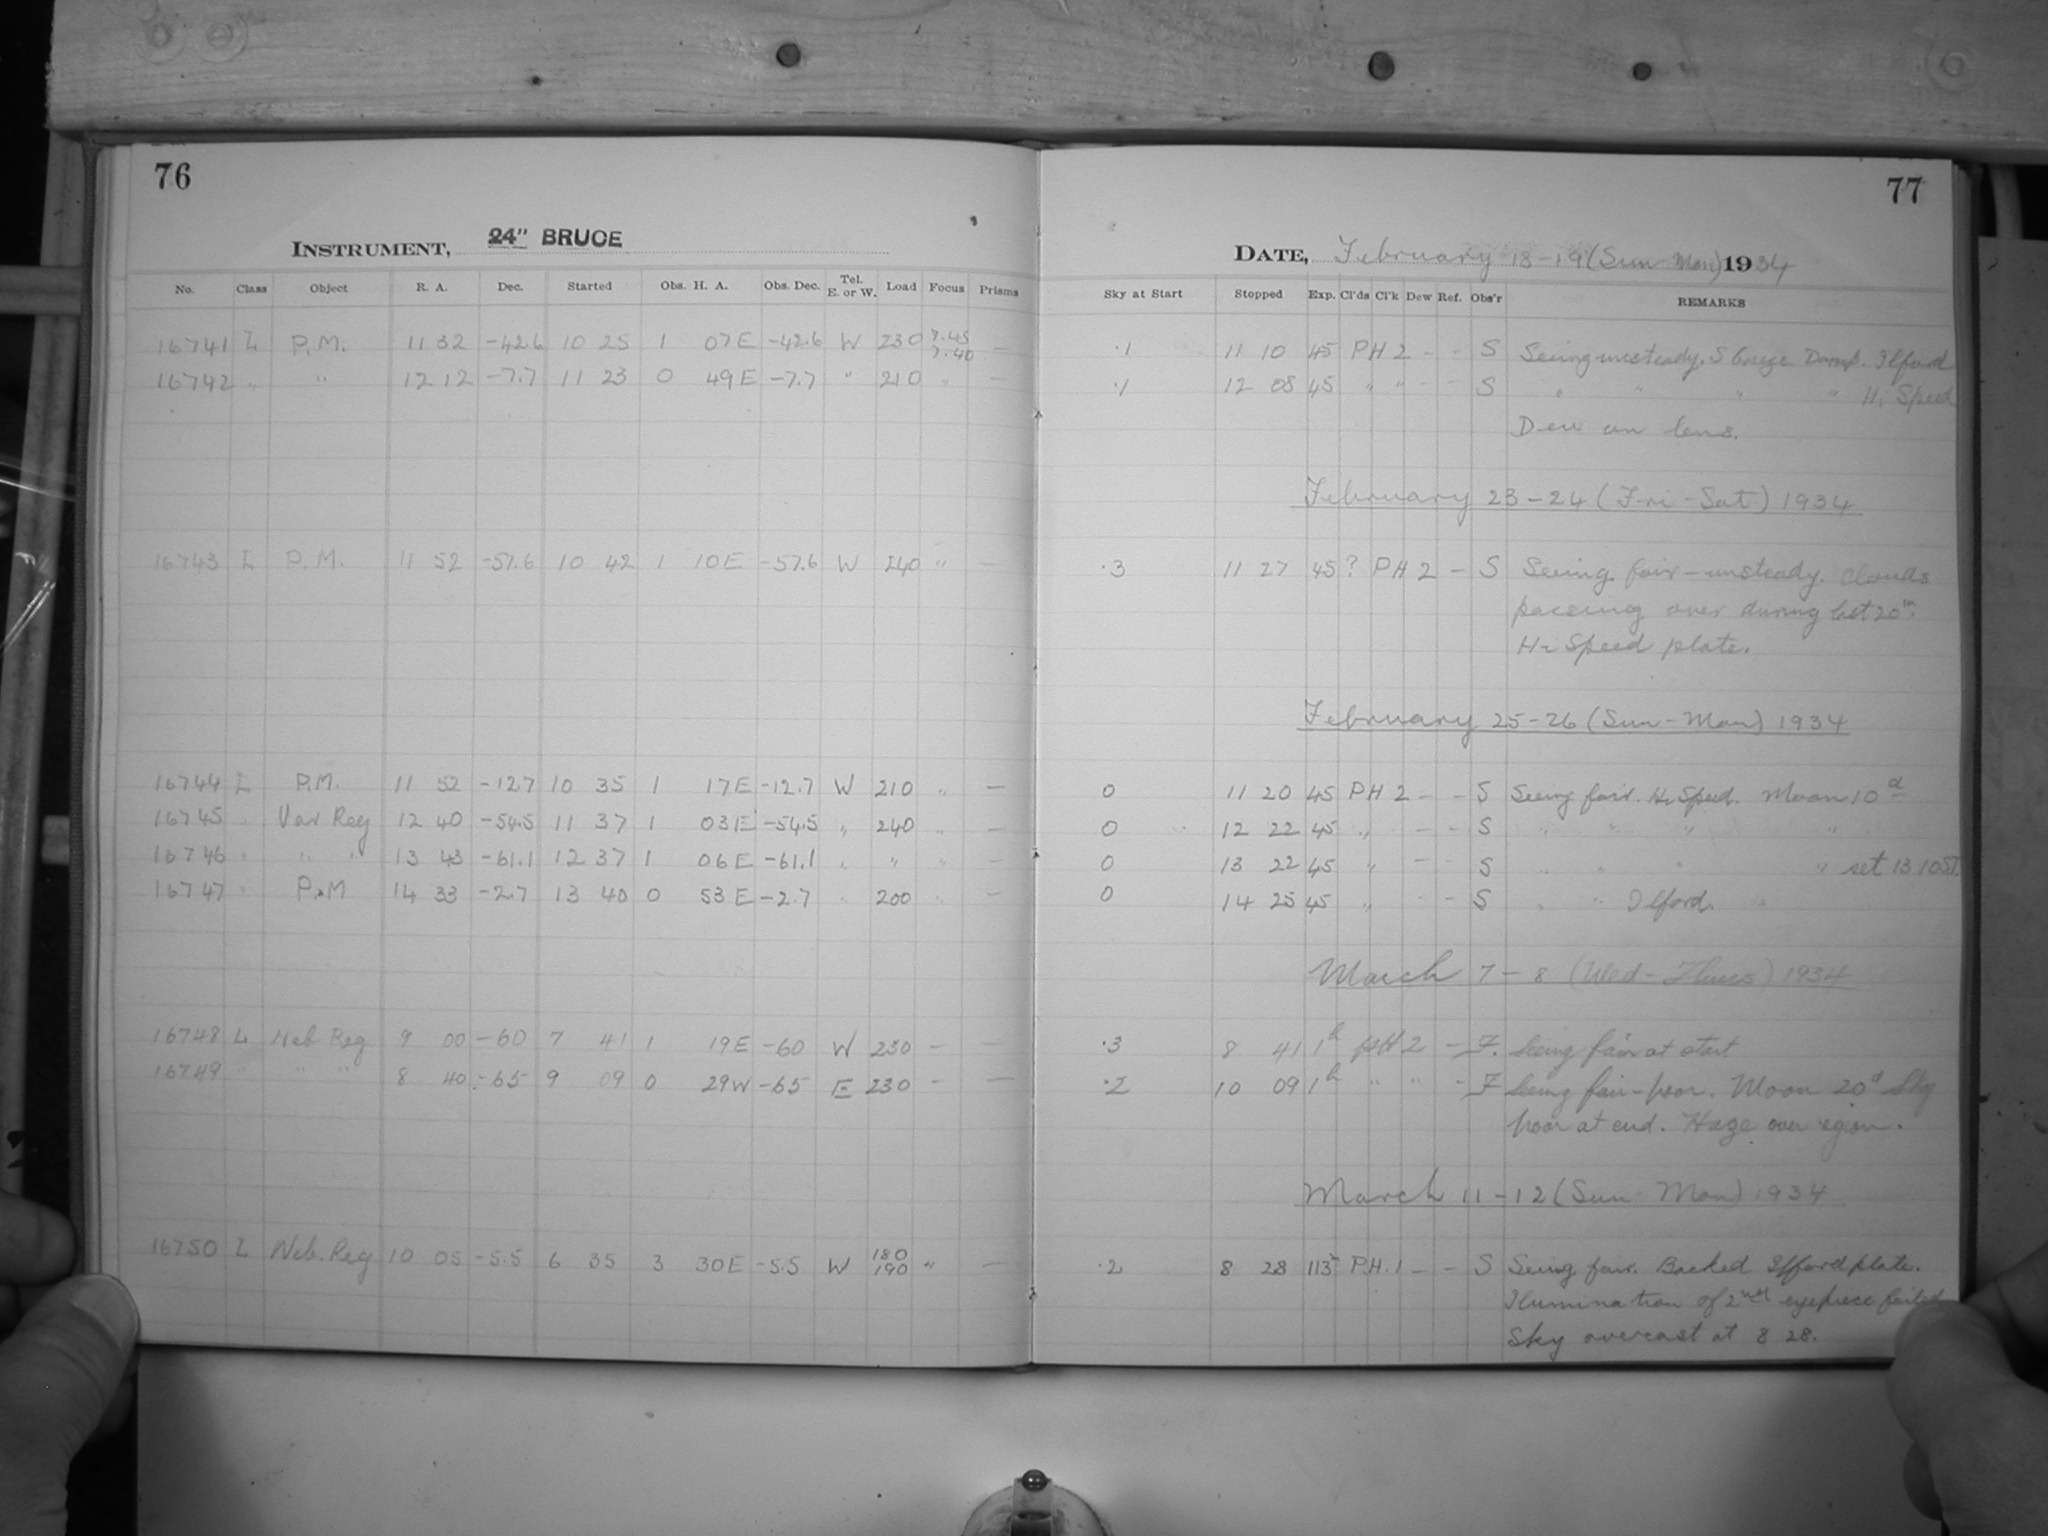 76
INSTRUMENT, 24" BRUCE
No. Class Object R. A. Dec. Started Obs. H. A. Obs. Dec. Tel. E. or W. Load Focus Prisms
16741 L P.M. 11 32 -42.6 10 25 1 07E -42.6 W 230 7.45 7.40 —
16742 " " 12 12 -7.7 11 23 0 49E -7.7 " 210 " —
16743 L P.M. 11 52 -57.6 10 42 1 10E -57.6 W 240 " —
16744 L P.M. 11 52 -12.7 10 35 1 17E -12.7 W 210 " —
16745 " Var Reg 12 40 -54.5 11 37 1 03E -54.5 " 240 " —
16746 " " " 13 43 -61.1 12 37 1 06E -61.1 " " " —
16747 " P.M 14 33 -2.7 13 40 0 53E -2.7 " 200 " —
16748 L Neb Reg 9 00 -60 7 41 1 19E -60 W 230 — —
16749 " " " 8 40 -65 9 09 0 29W -65 E 230 — —
16750 L Neb. Reg 10 05 -5.5 6 35 3 30E -5.5 W 180 190 " —
77
DATE, February 18-19 (Sun-Mon) 1934
Sky at Start Stopped Exp. Cl'ds Cl'k Dew Ref. Obs'r REMARKS
.1 11 10 45 PH 2 - - S Seeing unsteady. S breeze. Damp. Ilford
.1 12 08 45 " " - - S " " " " Hi Speed
Dew on lens.
February 23-24 (Fri-Sat) 1934
.3 11 27 45? PH 2 - S Seeing fair-unsteady. Clouds
passing over during last 20m.
Hi Speed plate.
February 25-26 (Sun-Mon) 1934
0 11 20 45 PH 2 - - S Seeing fair. Hi Speed. Moon 10d
0 12 22 45 " - - S " " " "
0 13 22 45 " - - S " " " " set 13.10 ST.
0 14 25 45 " - - S " " Ilford. "
March 7-8 (Wed-Thurs) 1934
.3 8 41 1h pH 2 - F. Seeing fair at start
.2 10 09 1h " " - F Seeing fair-poor. Moon 20d Sky
poor at end. Haze over region.
March 11-12 (Sun-Mon) 1934
.2 8 28 113 P.H. 1 - - S Seeing fair. Backed Ilford plate.
Ilumination of 2nd eyepiece failed
Sky overcast at 8 28.